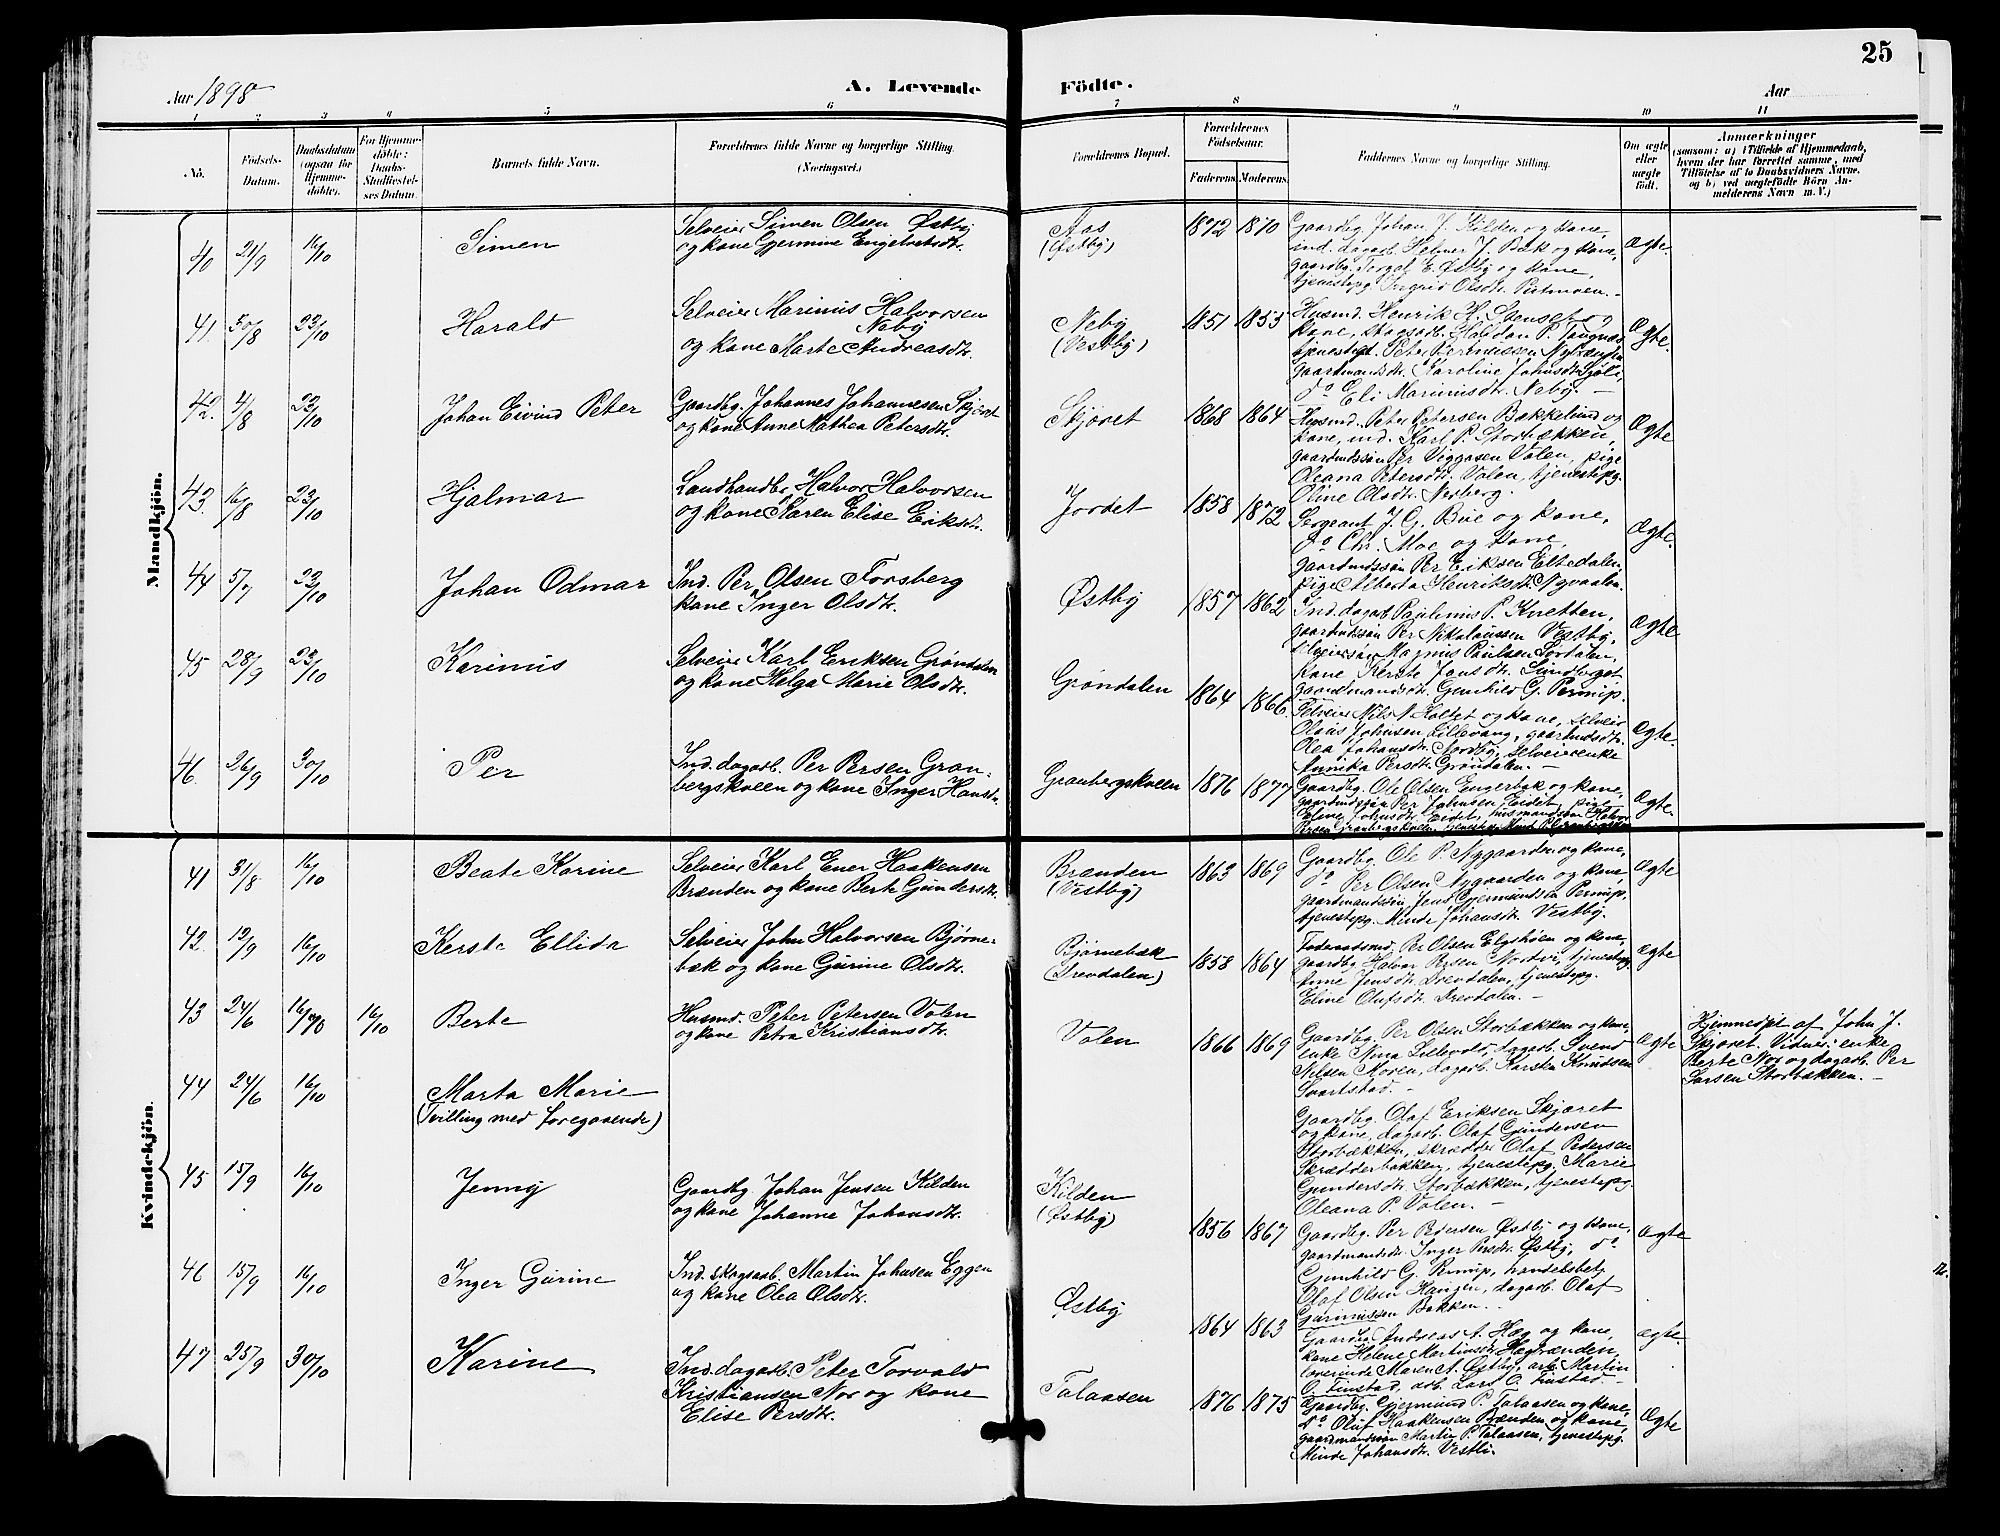 25
Aar 1898
A. Levende
Födte.
Aar
1 2 3 4 5 6 7 8 9 10 11
No.
Födsels-
Datum.
Daabsdatum
(ogsaa for
Hjemme-
döbte).
For Hjemme-
döbte:
Daabs-
Stadfæstel-
ses Datum.
Barnets fulde Navn.
Forældrenes fulde Navne og borgerlige Stilling.
(Næringsvei.)
Forældrenes Bopæl.
Forældrenes
Födselsaar.
Faderens. Moderens.
Faddernes Navne og borgerlige Stilling.
Om ægte
eller
uægte
födt.
Anmærkninger
(saasom: a) i Tilfælde af Hjemmedaab,
hvem der har forrettet samme, med
Tilföielse af to Daabsvidners Navne.
og b) ved uægtefödte Börn An-
melderens Navn m. V.)
Mandkjön.
40 21/9 16/10 Simen
Selveier Simen Olsen Østby
og kone Germine Engebretsdtr.
Aas
(Østby)
1872 1870
Gaardbg. Johan J. Kilden og kone,
ind. dagarb. Helmer J. Bæk og kone,
gaardbg. Torgal E. Østby og kone,
tjenestepg. Ingrid Olsdtr. Putmoen.-
Ægte.
41. 30/8 23/10 Harald
Selveier Marinius Halvorsen
Neby
og kone Marte Andreasdtr.
Neby
(Vestby)
1851 1855
Husmd. Henrik H. Stenset og
kone, skogsarb. Halvdan P.
tjenestegt. Peter
gaardmandsdtr. Karoline Johnsdtr. Sjøli,
do Eli Marinusdtr. Neby. -
Ægte.
42. 4/8 23/10 Johan Eivind Peter
Gaardbg. Johannes Johannesen Skjæret
og kone Anne Mathea Petersdtr.
Skjæret
1868 1864
Husmd. Peter Petersen Bækkelund og
kone, ind. Karl P. Storbækken,
gaardmdssøn Per Viggosen Volen, pige
Oleana Petersdtr. Volen, tjenestepg.
Oline Olsdtr. Nerberg.
Ægte
43. 16/8 23/10 Hjalmar
Landhandler Halvor Halvorsen
og kone Karen Elise Eriksdtr.
Jordet
1858 1872
Sergeant J. G. Bue og kone,
do Chr. Moe og kone,
gaardmdssøn Per Eriksen Eltedalen,
pige Alberta Henriksdtr. Nyvaalen
Ægte.
44 5/7 23/10 Johan Odmar
Ind. Per Olsen Forsberg
kone Inger Olsdtr.
Østby
1857 1862
Ind. dagarb. Paulinus P. Knetten,
gaardmdssøn Per Nikolaussen Vestby,
selveiersøn Magnus Paulsen Sørdalen,
kone Kerste Jonsdtr. Sundkoget,
gaardmandsdtr. Gunhild G. Pernup.
Ægte
45 28/9 23/10 Karinus
Selveier Karl Eriksen Grøndalen
og kone Helga Marie Olsdtr.
Grøndalen
1864 1866
Selveier Nils N. Holtet og kone, selveier
Olaus Johnsen Lillevang, gaardmdsdtr.
Olea Johansdtr. Nordby, selveierenke
Annika Persdtr. Grøndalen. -
Ægte.
46. 26/9 30/10 Per
Ind. dagarb. Per Persen Gran-
bergskveen og kone Inger Hansdtr.
Granbergskveen
1876 1877
Gaardbg. Ole Olsen Engerbæk og kone,
gaardmdssøn Per Johnsen Eidet, pige
Eline Johnsdtr. Eidet, husmandssøn Halvor
Persen Granbergskveen, tjenestepg.
Ægte.
Kvindekjön.
41 31/8 16/10 Beate Karine
Selveier Karl Ener Haakensen
Brænden og kone Berte Gundersdtr.
Brænden
(Vestby)
1863 1869
Gaardbg. Ole P. Nygaarden og kone,
do Per Olsen Nygaarden og kone,
gaardmandssøn Jens Gjermundsen Pernup,
tjenestepg. Minde Johansdtr. Vestby.
Ægte
42 19/9 16/10 Kerste Ellida
Selveier John Halvorsen Bjørne-
bæk og kone Gurine Olsdtr.
Bjørnebæk
(Drevdalen)
1858 1864
Føderaadsmd. Per Olsen Elgshøen og kone,
gaardbg. Halvor Persen Nordvi, tjenestepg.
Anne Jensdtr. Drevdalen, tjenestepg.
Eline Olufsdtr. Drevdalen. -
Ægte
43 24/6 16/10 16/10 Berte
Husmd. Peter Petersen Volen
og kone Petra Kristiansdtr.
Volen
1866 1869
Gaardbg. Per Olsen Storbækken og kone,
enke Nina Lillevold, dagarb. Svend
Nilsen Moren, dagarb. Karsten Knudsen
Svartstad. -
Ægte
Hjemmedøbt af John J.
Skjæret. Vidner: enke
Berte Nor og dagarb. Per
Larsen Storbækken. -
44 24/6 16/10 Marta Marie
(Tvilling med foregaaende)
Gaardbg. Olaf Eriksen Skjæret
og kone, dagarb. Olaf Gundersen
Storbækken, skrædder Olaf Pedersen
Skrædderbakken, tjenestepg. Marie
Gundersdtr. Storbækken, tjenestepg.
Oleana P. Volen. -
45 15/9 16/10 Jenny
Gaardbg. Johan Jensen Kilden
og kone Johanne Johansdtr.
Kilden
(Østby)
1856 1867
Gaardbg. Per Pedersen Østby og kone,
gaardmandsdtr. Inger Persdtr. Østby, do
Gunhild G. Pernup, handelsbetj.
Olaf Olsen Haugen, dagarb. Olaf
Gunnussen Bakken. -
Ægte
46 15/9 16/10 Inger Gurine
Ind. skogsarb. Martin Johnsen Eggen
og kone Olea Olsdtr.
Østby
1864 1863
Gaardbg. Andreas A. Hæg og kone,
kone Helene Martinsdtr. Hegbrænden,
lærerinde Maren A. Østby, arb. Martin
O. Finstad, arb. Lars O. Finstad -
Ægte.
47 25/9 30/10 Karine
Ind. dagarb. Peter Torvald
Kristiansen Nor og kone
Elise Persdtr.
Talaasen
1876 1875
Gaardbg. Gjermund P. Talaasen og kone,
do Oluf Haakensen Brænden og kone,
gaardmandssøn Martin P. Talaasen, tjenestepg.
Minde Johansdtr. Vestli.
Ægte
12.